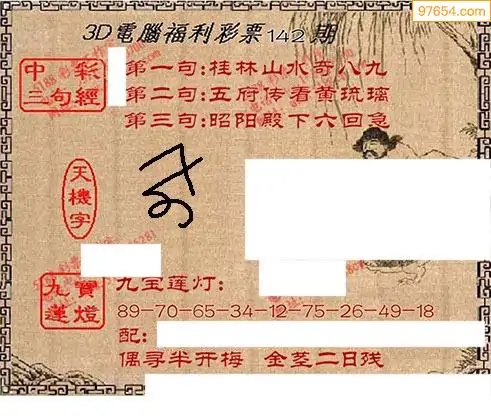 97654.com
3D電腦福利彩票142期
中彩三句經
第一句:桂林山水奇八九
第二句:五府传看黄琉璃
第三句:昭阳殿下六回急
天機字
九寶蓮燈
九宝莲灯:
89-70-65-34-12-75-26-49-18
配:
偶寻半开梅 金茎二日残